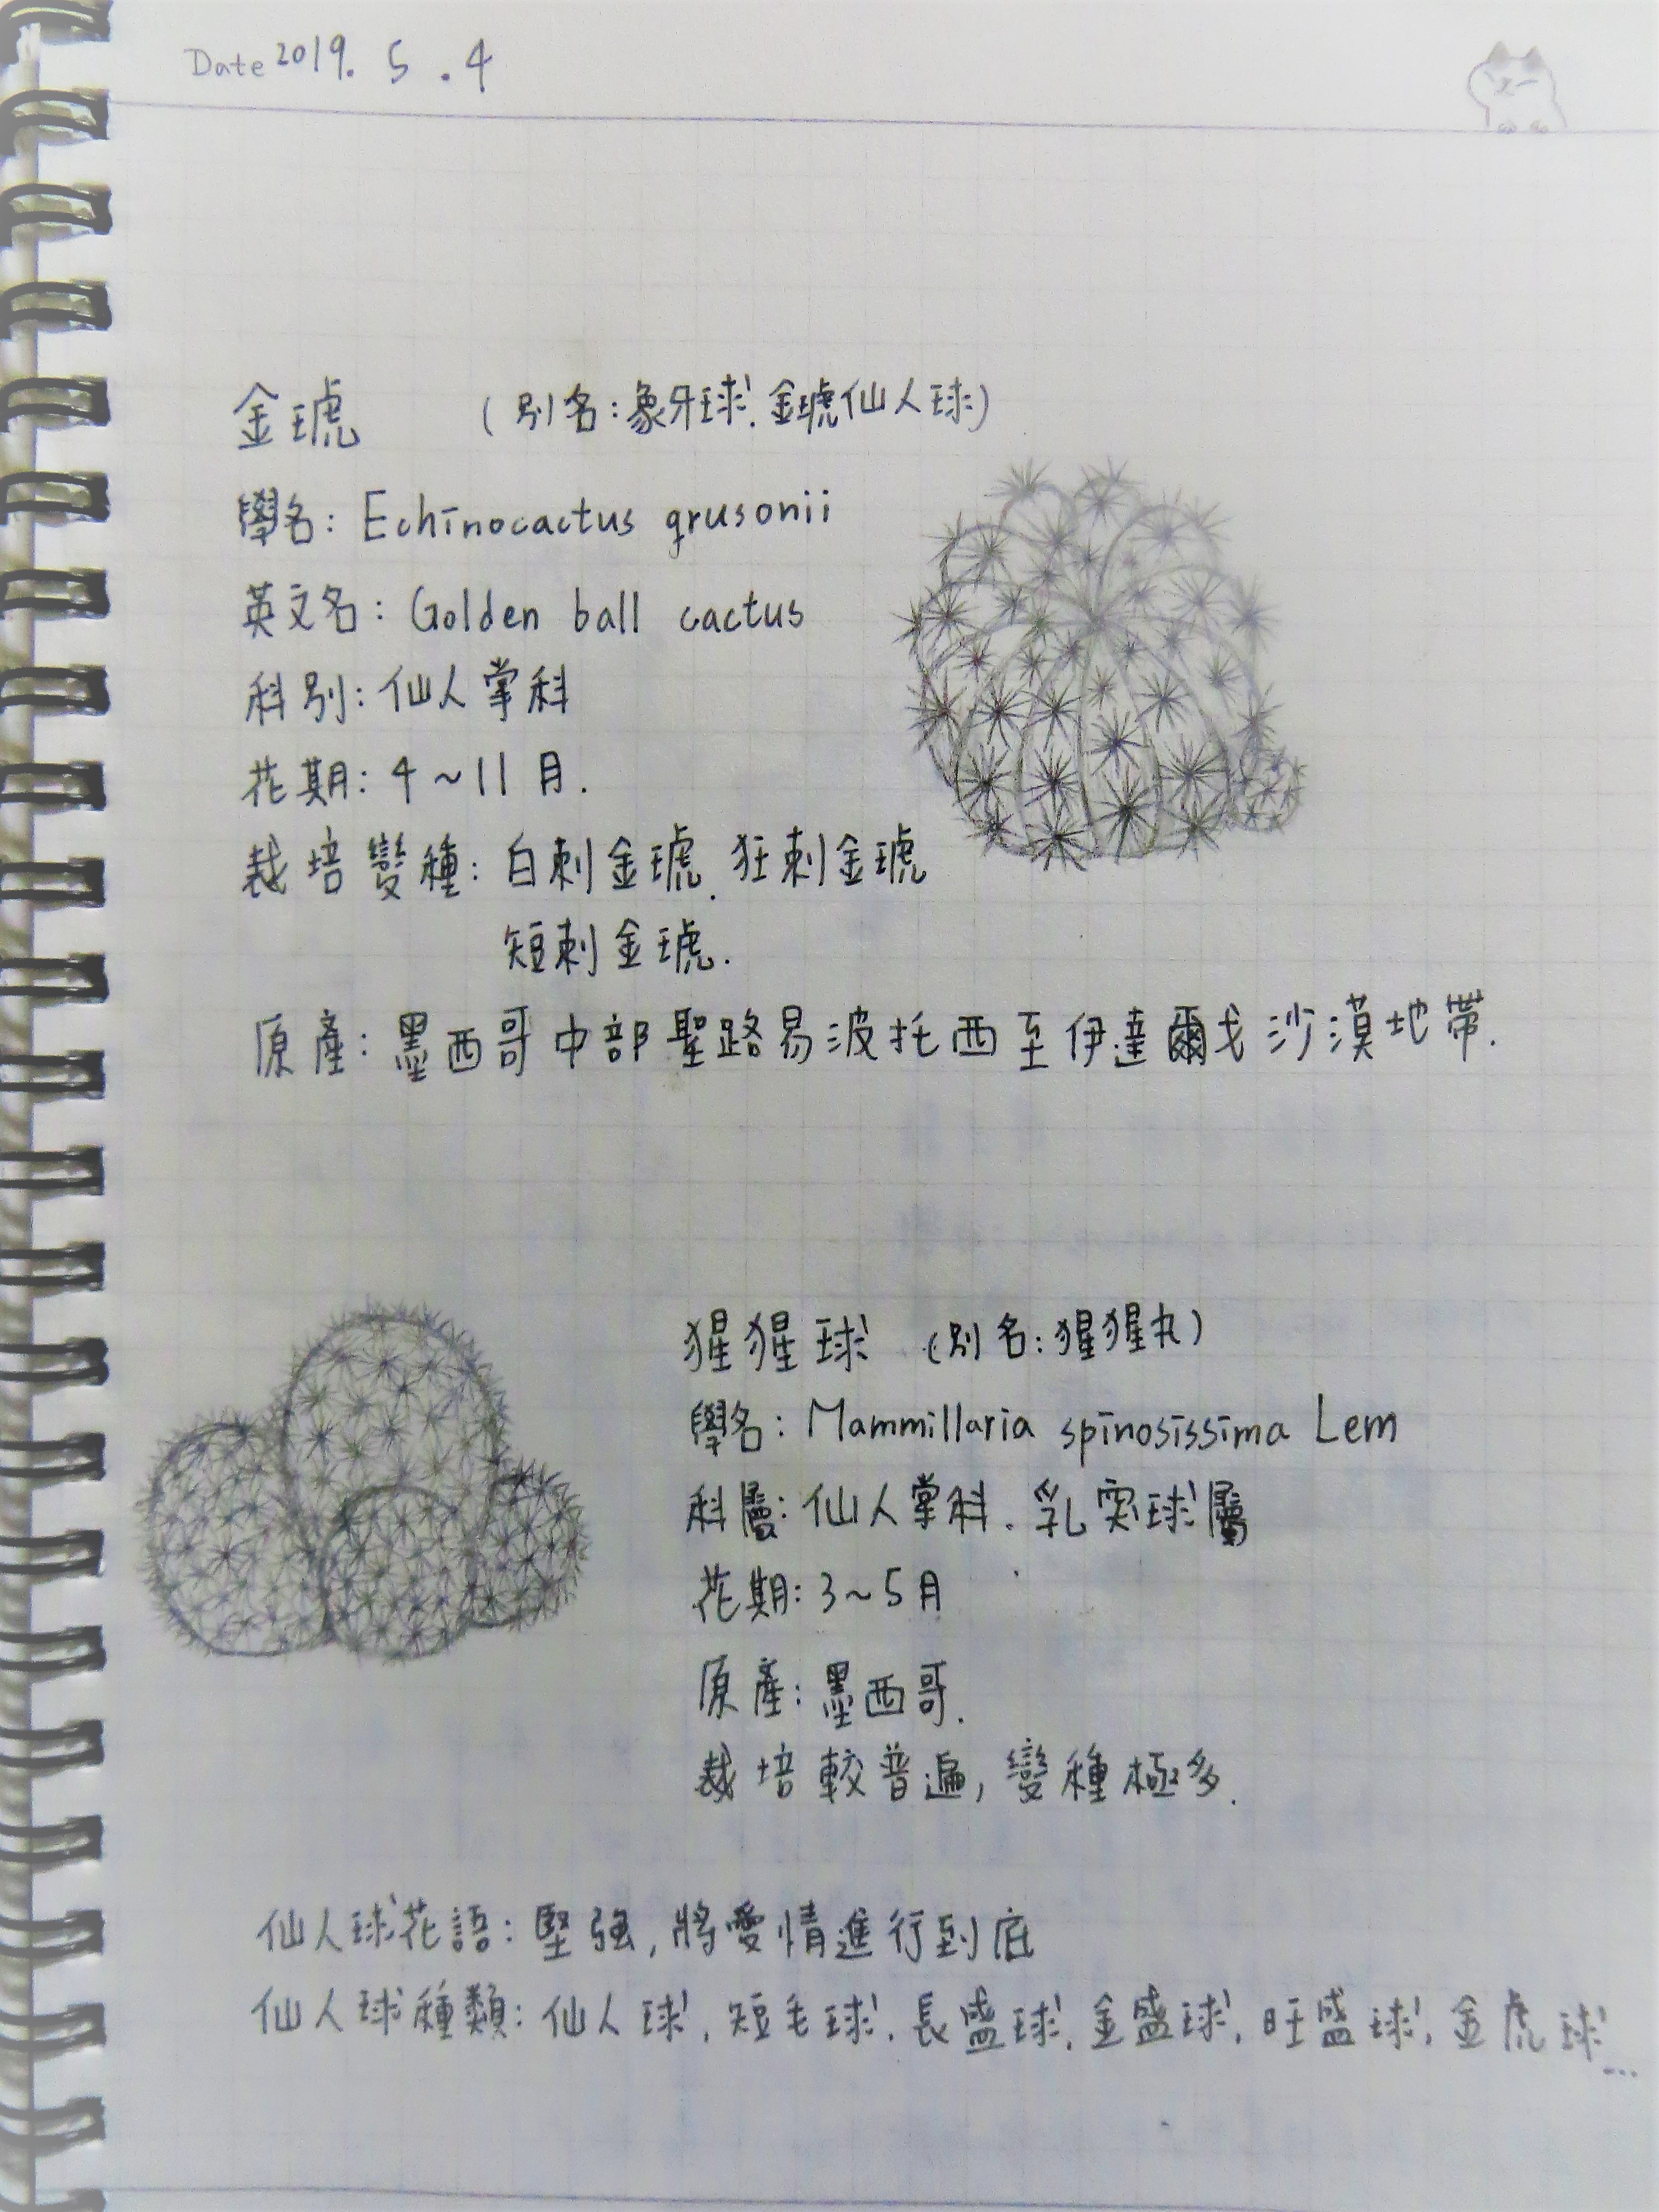 Date 2019. 5 . 4
金琥 (別名:象牙球.金琥仙人球)
學名: Echinocactus grusonii
英文名: Golden ball cactus
科別: 仙人掌科
花期: 4~11月.
栽培變種: 白刺金琥.狂刺金琥
短刺金琥.
原產: 墨西哥中部聖路易波托西至伊達爾戈沙漠地帶.
猩猩球 (別名:猩猩丸)
學名: Mammillaria spinosissima Lem
科屬: 仙人掌科.乳突球屬
花期: 3~5月
原產: 墨西哥.
栽培較普遍,變種極多.
仙人球花語: 堅強,將愛情進行到底
仙人球種類: 仙人球.短毛球.長盛球.金盛球.旺盛球.金虎球...